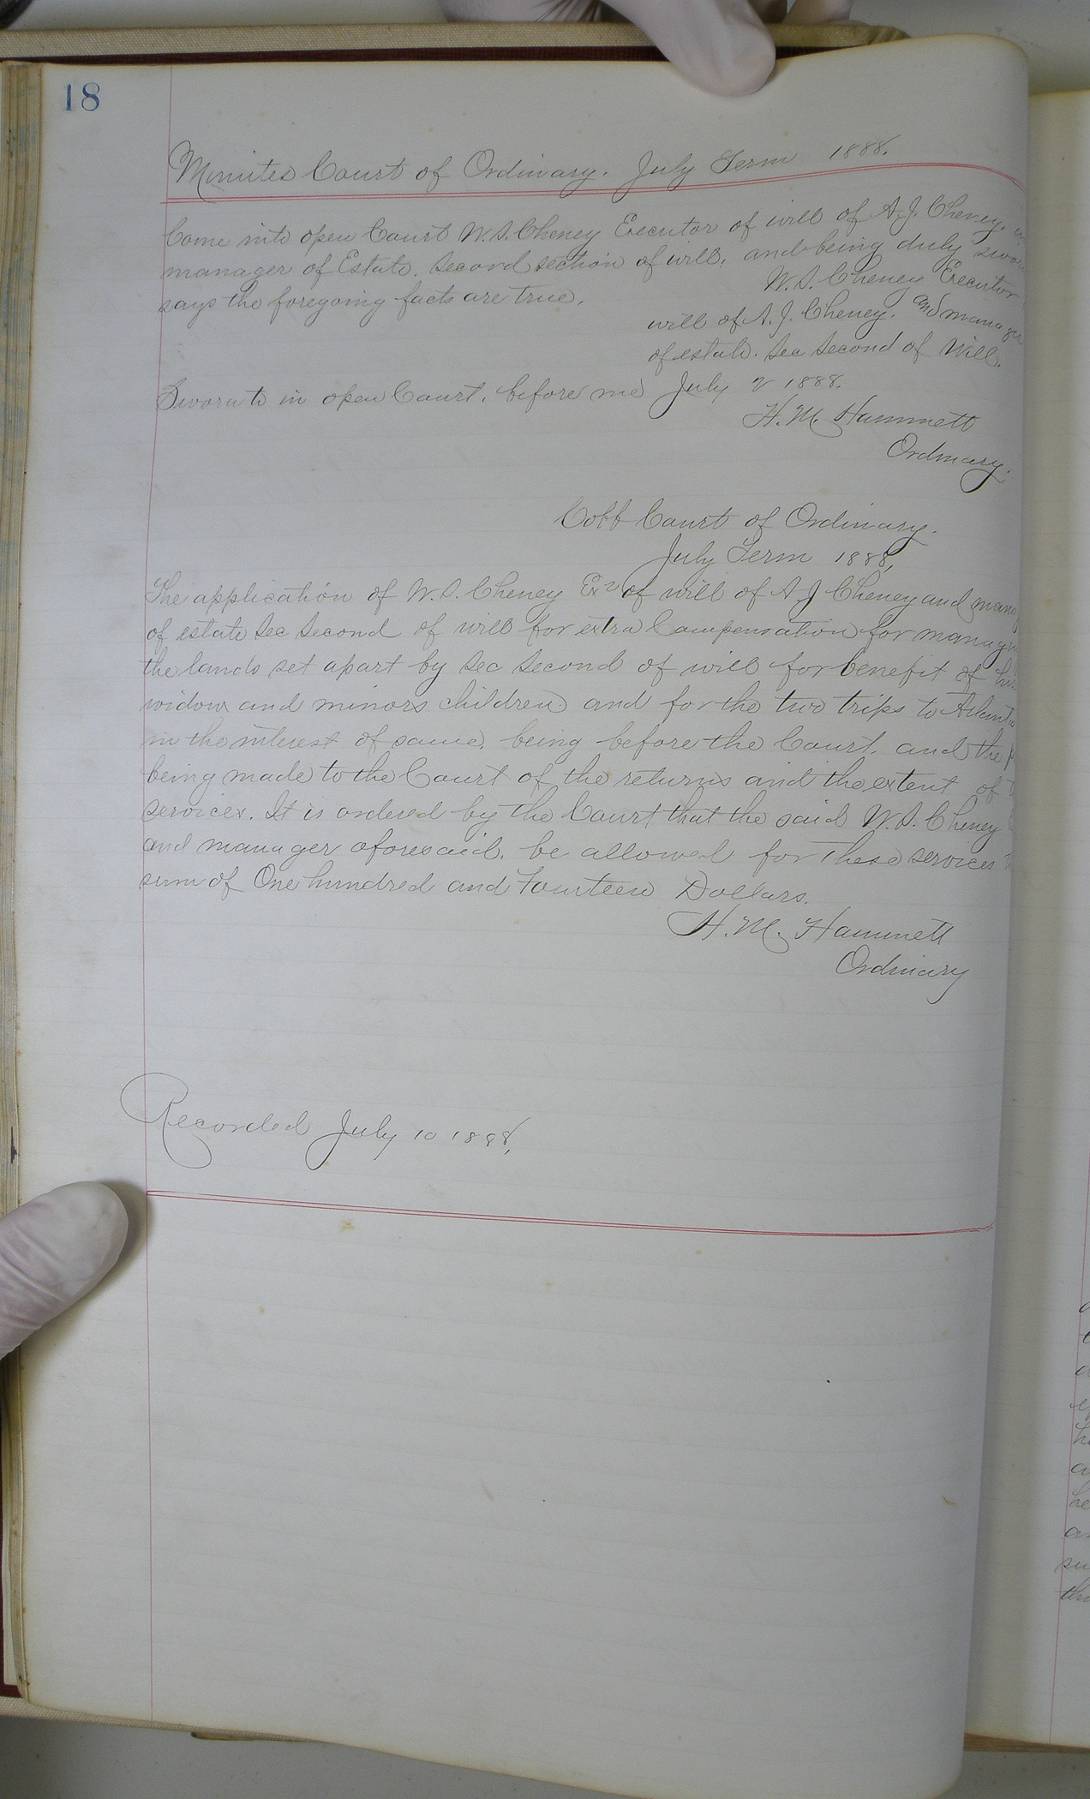 18
Minutes Court of Ordinary. July Term 1888.
Come into open Court W.S. Cheney Executor of will of A.J. Cheney.
manager of Estate. Second section of will. and being duly sworn
says the foregoing facts are true.
W.S. Cheney Executor
will of A.J. Cheney. and manager
of estate. Sec Second of Will.
Sworn to in open Court. before me July 2 1888.
H. M. Hammett
Ordinary.
Cobb Court of Ordinary.
July Term 1888,
The application of W.S. Cheney Exr of will of A J Cheney and mana
of estate Sec Second of will for extra Compensation for managin
the lands set apart by Sec Second of will for benefit of his
widow and minors children and for the two trips to Atlanta
in the interest of same. being before the Court. and the
being made to the Court of the returns and the extent of
services. It is ordered by the Court that the said W.S. Cheney
and manager aforesaid. be allowed for these services
sum of One hundred and Fourteen Dollars.
H. M. Hammett
Ordinary
Recorded July 10 1888,